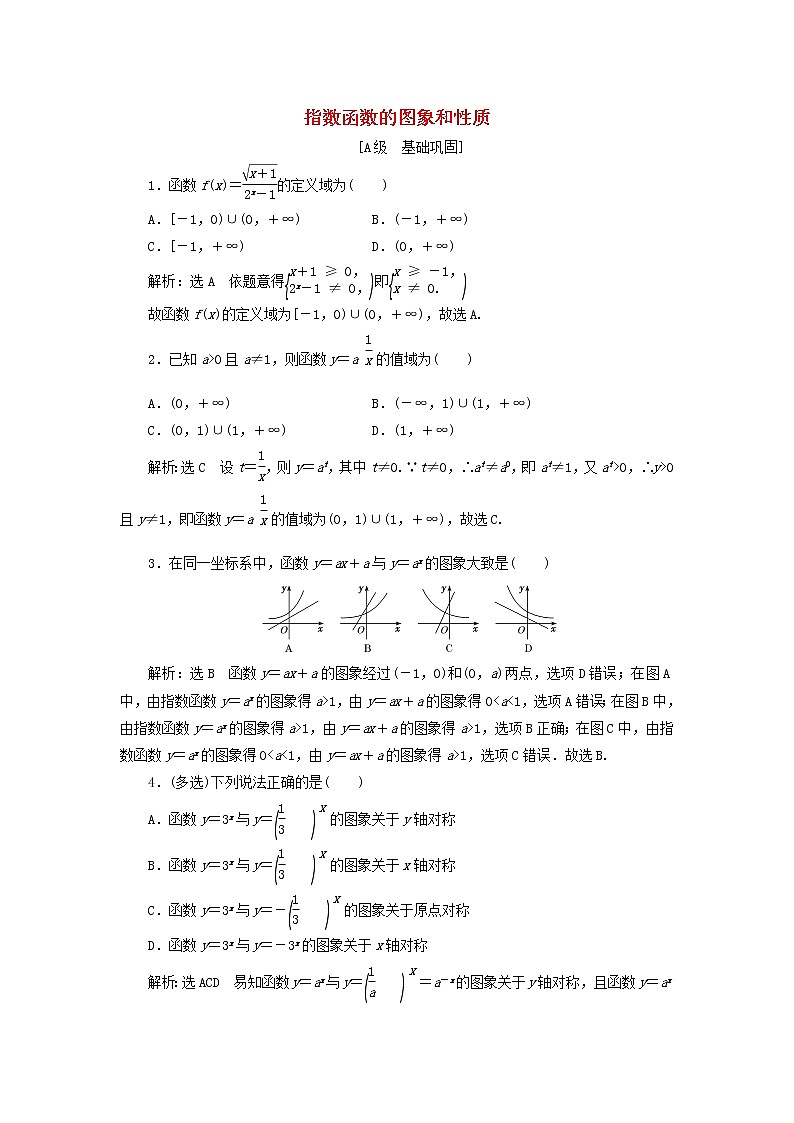 指数函数的图象和性质
[A级 基础巩固]
1.函数 f(x)=\frac{\sqrt{x+1}}{2^x-1}的定义域为( )
A.[-1,0)∪(0,+∞) B.(-1,+∞)
C.[-1,+∞) D.(0,+∞)
解析:选 A 依题意得{x+1 ≥ 0, 2^x-1 ≠ 0,即{x ≥ -1, x ≠ 0.
故函数 f(x)的定义域为[-1,0)∪(0,+∞),故选A.
2.已知 a>0且 a≠1,则函数 y=a^{\frac{1}{x}}的值域为( )
A.(0,+∞) B.(-∞,1)∪(1,+∞)
C.(0,1)∪(1,+∞) D.(1,+∞)
解析:选 C 设 t=\frac{1}{x},则 y=a^t,其中 t≠0.∵t≠0,∴a^t≠a^0,即 a^t≠1,又 a^t>0,∴y>0
且 y≠1,即函数 y=a^{\frac{1}{x}}的值域为(0,1)∪(1,+∞),故选C.
3.在同一坐标系中,函数 y=ax+a 与 y=a^x的图象大致是( )
y y y y
O x O x O x O x
A B C D
解析:选 B 函数 y=ax+a 的图象经过(-1,0)和(0,a)两点,选项 D错误;在图 A
中,由指数函数 y=a^x的图象得 a>1,由 y=ax+a 的图象得0<a<1,选项 A错误;在图 B 中,
由指数函数 y=a^x的图象得 a>1,由 y=ax+a 的图象得 a>1,选项 B 正确;在图 C 中,由指
数函数 y=a^x的图象得0<a<1,由 y=ax+a 的图象得 a>1,选项 C 错误.故选 B.
4.(多选)下列说法正确的是( )
A.函数 y=3^x与 y=(\frac{1}{3})^x的图象关于 y 轴对称
B.函数 y=3^x与 y=(\frac{1}{3})^x的图象关于 x 轴对称
C.函数 y=3^x与 y=-(\frac{1}{3})^x的图象关于原点对称
D.函数 y=3^x与 y=-3^x的图象关于 x 轴对称
解析:选 ACD 易知函数 y=a^x与 y=(\frac{1}{a})^x=a^{-x}的图象关于 y 轴对称,且函数 y=a^x